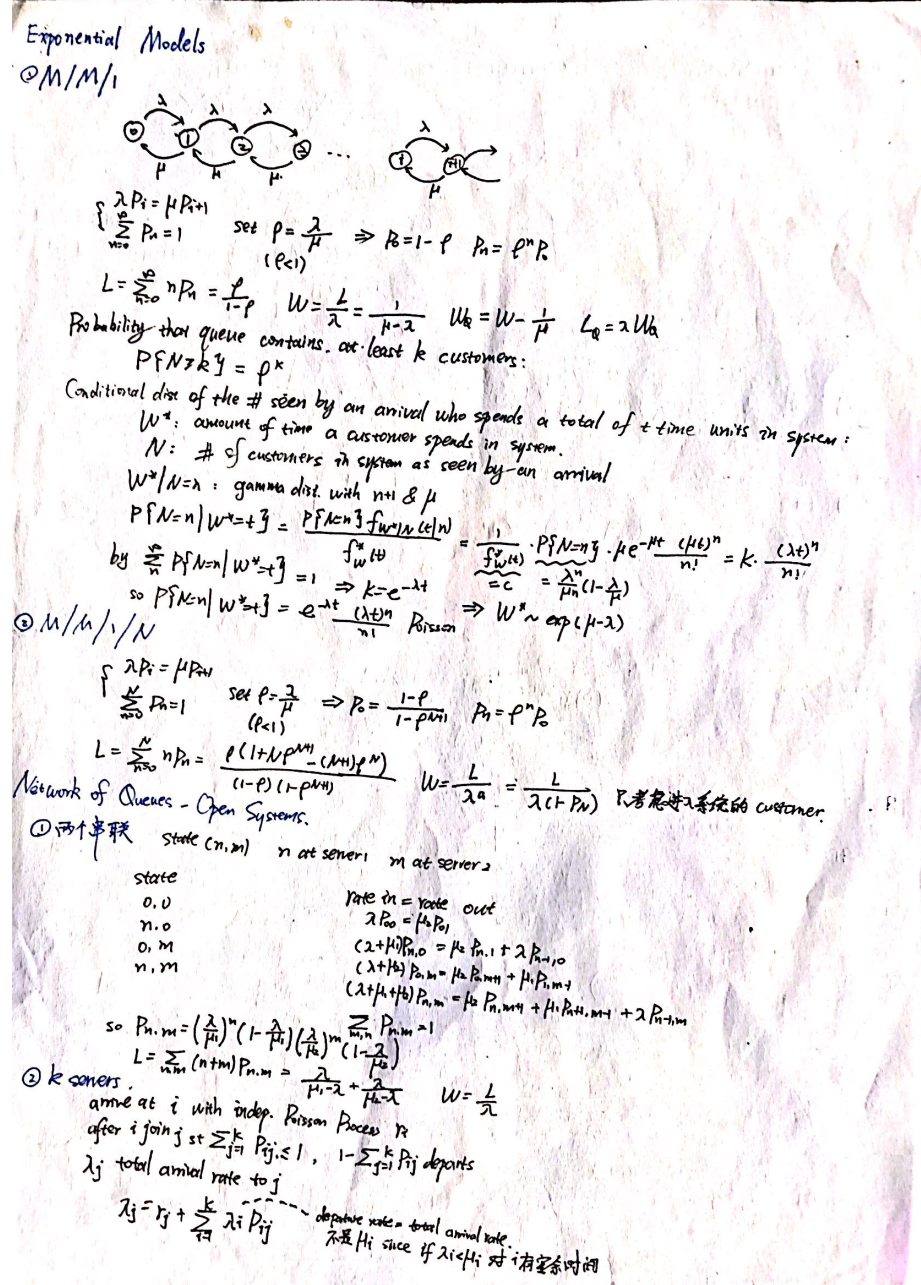 Exponential Models
① M/M/1
λ λ λ λ
0 1 2 3 ... i i+1
μ μ μ μ
{ λPi = μPi+1
∑_{n=0}^{∞} Pn = 1 set ρ = λ/μ (ρ<1) ⇒ P0 = 1-ρ Pn = ρ^n P0
L = ∑_{n=0}^{∞} nPn = ρ/(1-ρ) W = L/λ = 1/(μ-λ) WQ = W - 1/μ LQ = λWQ
Probability that queue contains at least k customers:
P{N≥k} = ρ^k
Conditional dist of the # seen by an arrival who spends a total of t time units in system:
W*: amount of time a customer spends in system.
N: # of customers in system as seen by an arrival
W*|N=n : gamma dist. with n+1 & μ
P{N=n|W*=t} = P{N=n} f_{W*|N}(t|n) / f_W*(t) = 1/f_W*(t) · P{N=n} · μe^{-μt} (μt)^n/n! = K · (λt)^n/n!
=C = λ^n/μ^n (1-λ/μ)
by ∑_{n}^{∞} P{N=n|W*=t} = 1 ⇒ K=e^{-λt}
so P{N=n|W*=t} = e^{-λt} (λt)^n/n! Poisson ⇒ W* ~ exp(μ-λ)
② M/M/1/N
{ λPi = μPi+1
∑_{n=0}^{N} Pn = 1 set ρ = λ/μ (ρ<1) ⇒ P0 = (1-ρ)/(1-ρ^{N+1}) Pn = ρ^n P0
L = ∑_{n=0}^{N} nPn = ρ(1+Nρ^{N+1}-(N+1)ρ^N)/((1-ρ)(1-ρ^{N+1})) W = L/λa = L/(λ(1-PN)) 只考虑进入系统的 customer.
Network of Queues - Open Systems.
① 两个串联 state (n,m) n at server 1 m at server 2
state rate in = rate out
0,0 λP00 = μ2P01
n,0 (λ+μ1)Pn,0 = μ2 Pn,1 + λPn-1,0
0,m (λ+μ2)P0,m = μ2 P0,m+1 + μ1P1,m-1
n,m (λ+μ1+μ2)Pn,m = μ2 Pn,m+1 + μ1Pn+1,m-1 + λPn-1,m
∑_{m,n} Pn,m = 1
so Pn,m = (λ/μ1)^n (1-λ/μ1)(λ/μ2)^m (1-λ/μ2)
L = ∑_{n,m} (n+m)Pn,m = λ/(μ1-λ) + λ/(μ2-λ) W = L/λ
② k servers.
arrive at i with indep. Poisson Process ri
after i join j st ∑_{j=1}^{k} Pij ≤ 1, 1-∑_{j=1}^{k} Pij departs
λj total arrival rate to j
λj = rj + ∑_{i=1}^{k} λi Pij ---- departure rate = total arrival rate
不是μi since if λi<μi 对 i 有空余时间